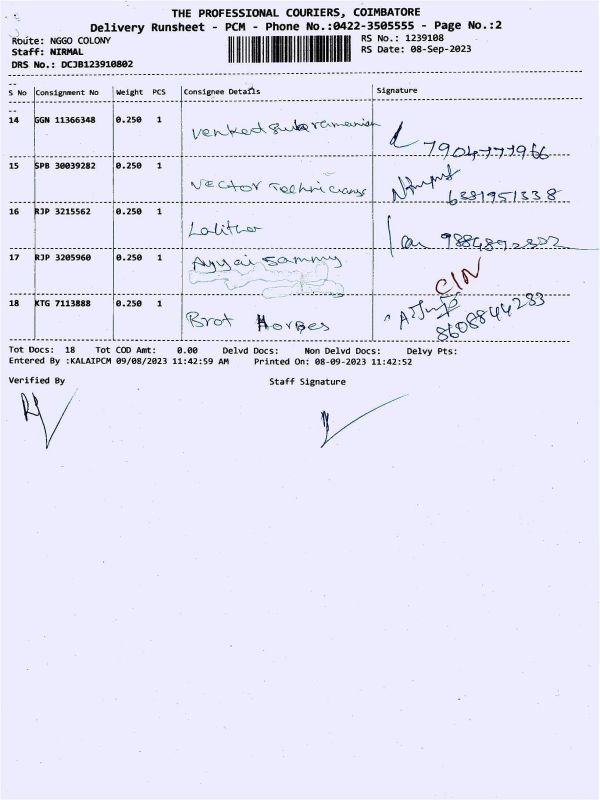 THE PROFESSIONAL COURIERS, COIMBATORE
Delivery Runsheet - PCM - Phone No.:0422-3505555 - Page No.:2
Route: NGGO COLONY
RS No.: 1239108
Staff: NIRMAL
RS Date: 08-Sep-2023
DRS No.: DCJB123910802
S No Consignment No Weight PCS Consignee Details Signature
14 GGN 11366348 0.250 1 Venkedsubramanian
15 SPB 30039282 0.250 1 Vector Technicians 6381951338
16 RJP 3215562 0.250 1 Lalitha 9884892802
17 RJP 3205960 0.250 1 Ayyai Sammy
18 KTG 7113888 0.250 1 Brot 8608844283
Tot Docs: 18 Tot COD Amt: 0.00 Delvd Docs: Non Delvd Docs: Delvy Pts:
Entered By :KALAIPCM 09/08/2023 11:42:59 AM Printed On: 08-09-2023 11:42:52
Verified By Staff Signature